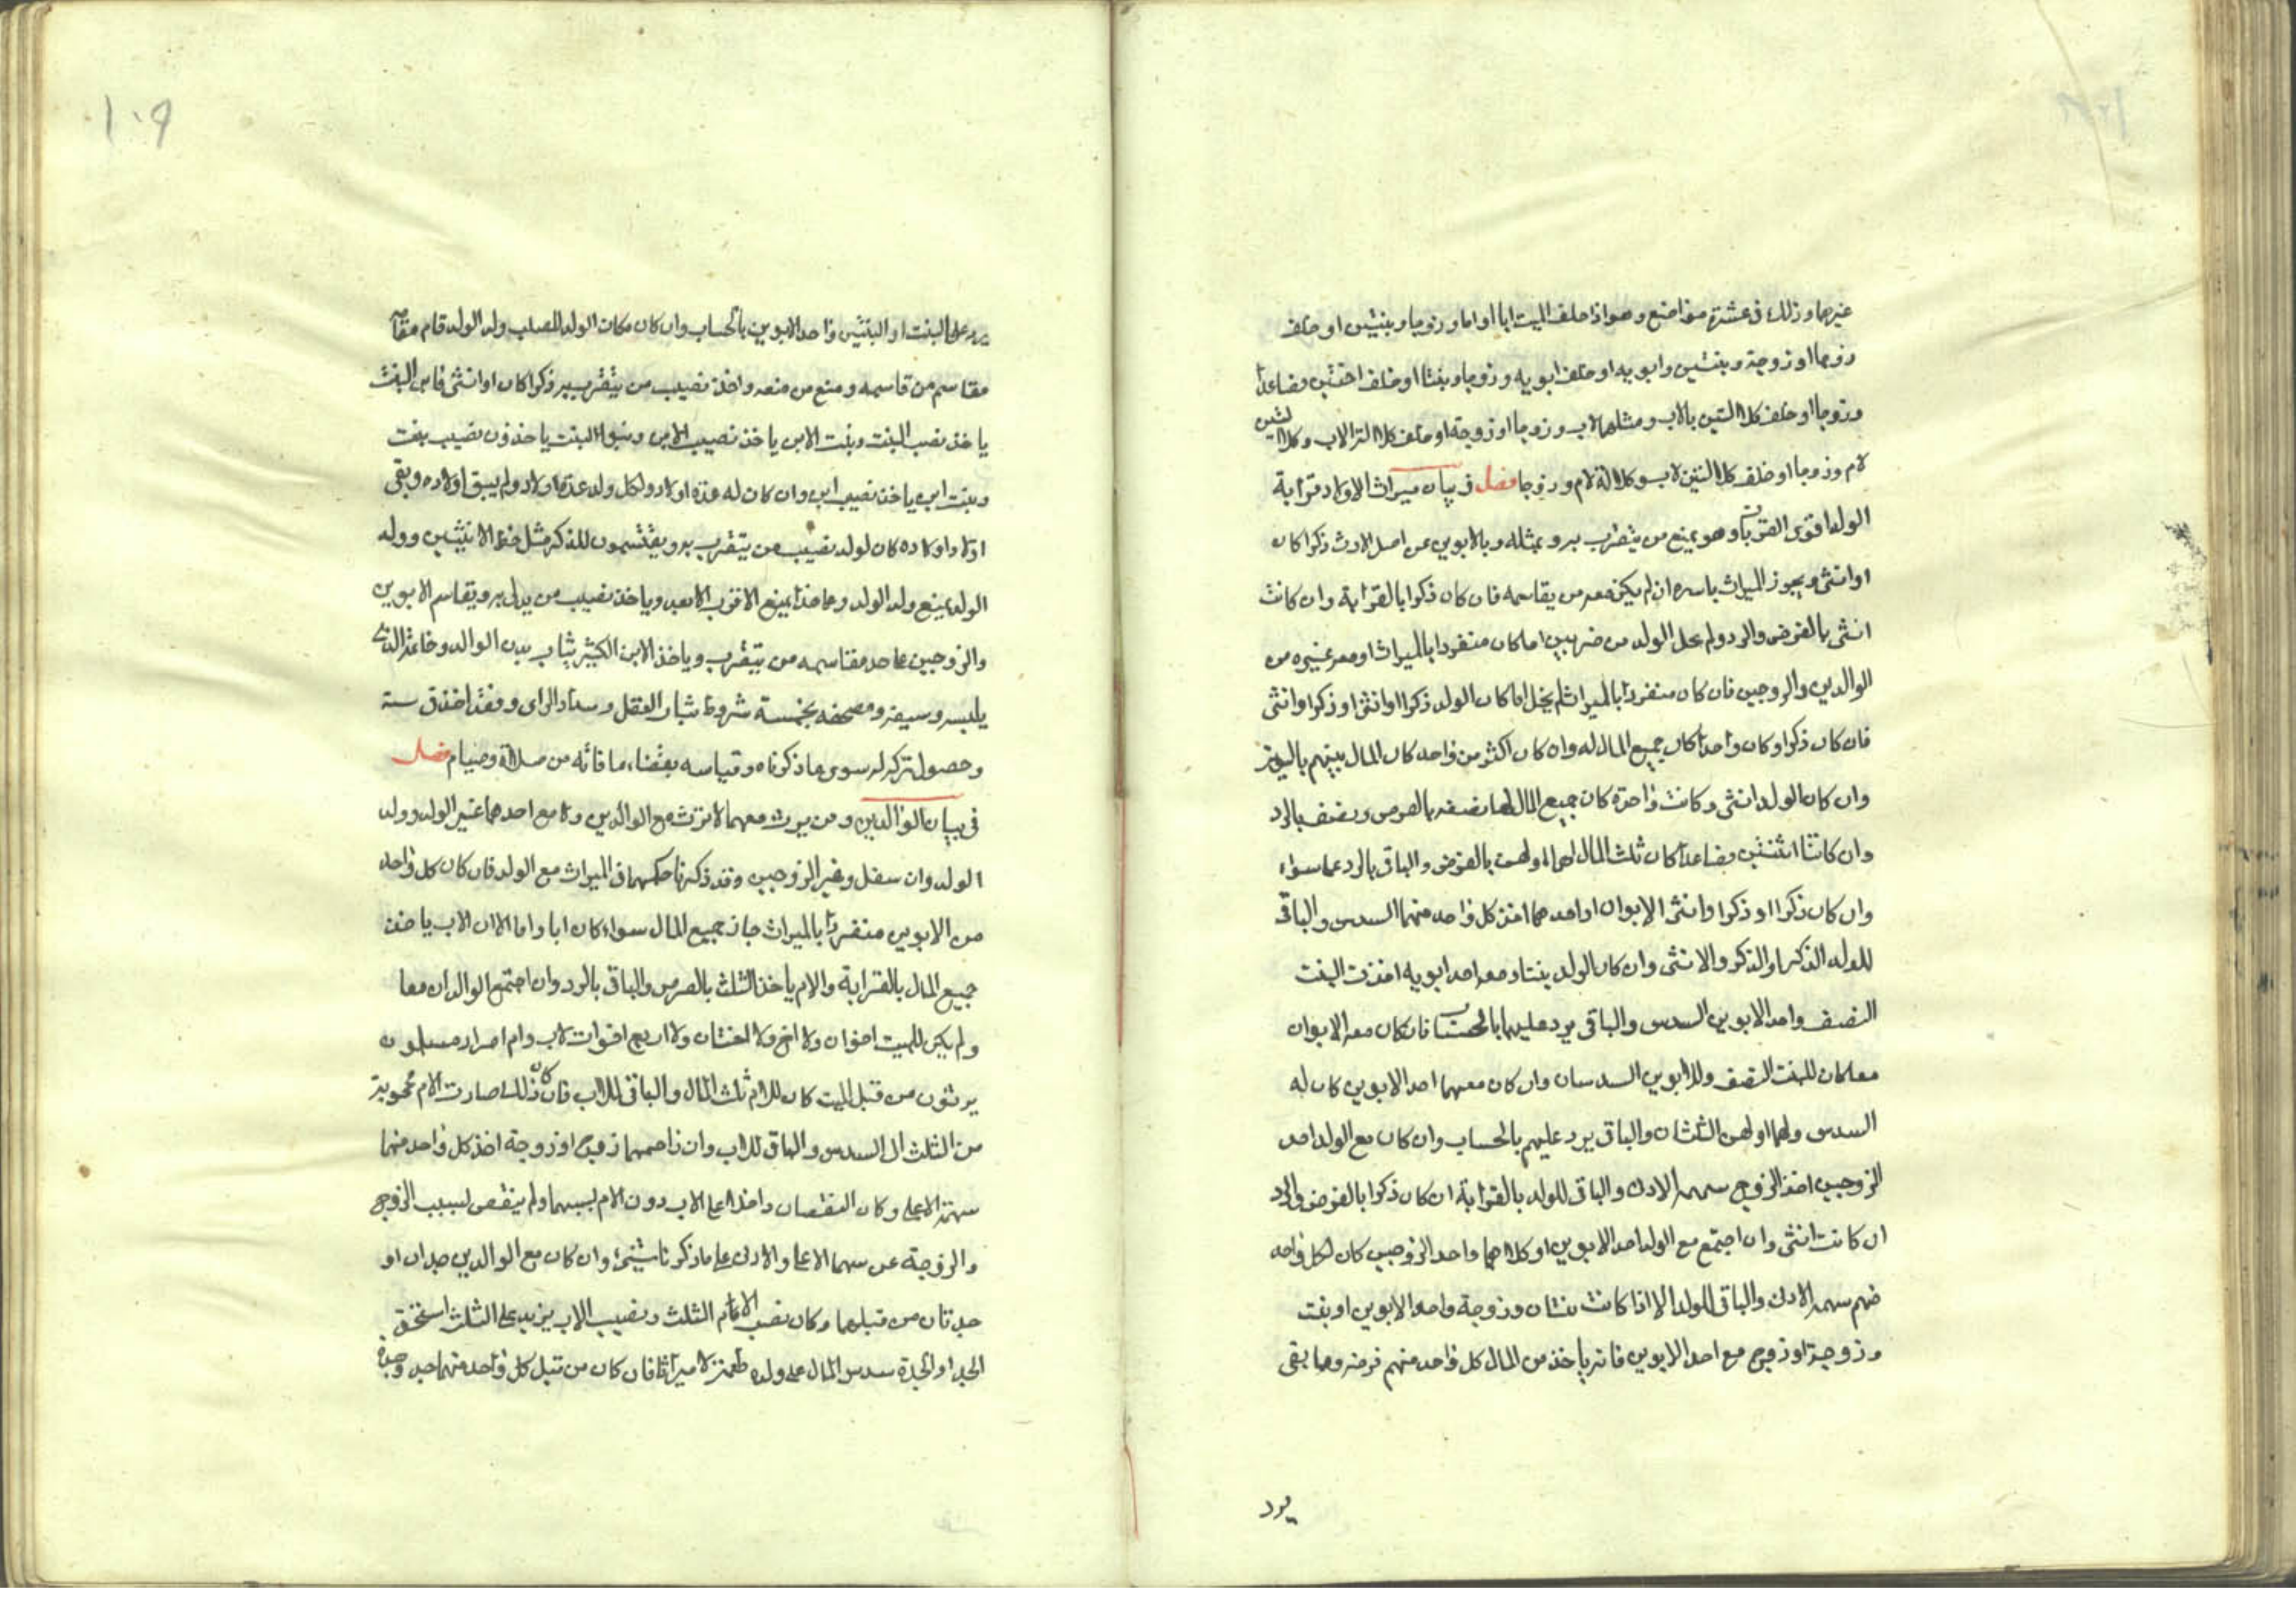 غيرهما وذلك في عشرة مواضع وهو اذا خلف الميت ابا او اما وزوجا وبنتين او خلف
زوجا او زوجة وبنتين وابويه او خلف ابويه وزوجا وبنتا او خلف اختين فصاعدا
وزوجا او خلف كلالتين بالاب ومثلهما لاب وزوجا او زوجة او خلف كلالة الاب وكلالتين
لام وزوجا او خلف كلالتين لاب وكلالة لام وزوجا فصل في بيان ميراث الاولاد قرابة
الولد اقوى القربات وهو يمنع من يتقرب به وبمثله وبالابوين عن اصل الارث ذكرا كان
او انثى ويحوز الميراث باسره ان لم يكن معه من يقاسمه فان كان ذكرا بالقرابة وان كانت
انثى بالفرض والرد ولم يخل الولد من ضربين اما كان منفردا بالميراث او معه غيره من
الوالدين والزوجين فان كان منفردا بالميراث لم يخل اما كان الولد ذكرا او انثى او ذكرا وانثى
فان كان ذكرا وكان واحدا كان جميع المال له وان كان اكثر من واحد كان المال بينهم بالسوية
وان كان الولد انثى وكانت واحدة كان جميع المال لها نصفه بالفرض ونصف بالرد
وان كانتا اثنتين فصاعدا كان ثلث المال لهما او لهن بالفرض والباقي بالرد على سواء
وان كان ذكرا او ذكرا وانثى الابوان او احدهما اخذ كل واحد منهما السدس والباقي
للولد الذكر او الذكر والانثى وان كان الولد بنتا ومعه احد ابويه اخذت البنت
النصف واحد الابوين السدس والباقي يرد عليهما بالحساب فان كان معه الابوان
معا كان للبنت النصف وللابوين السدسان وان كان معهما احد الابوين كان له
السدس ولهما او لهن الثلثان والباقي يرد عليهم بالحساب وان كان مع الولد احد
الزوجين اخذ الزوج سهمه الادنى والباقي للولد بالقرابة ان كان ذكرا بالفرض والرد
ان كانت انثى وان اجتمع مع الولد احد الابوين او كلاهما واحد الزوجين كان لكل واحد
منهم سهمه الادنى والباقي للولد الا اذا كانت بنتان وزوجة واحد الابوين او بنت
وزوجة او زوج مع احد الابوين فانه ياخذ من المال كل واحد منهم فرضه وما بقى
يرد
١٠٩
يرد على البنت او البنتين واحد الابوين بالحساب وان كان مكان الولد للصلب ولد الولد قام مقامه
مقاسم من قاسمه ومنع من منعه واخذ نصيب من يتقرب به ذكرا كان او انثى فابن البنت
ياخذ نصب البنت وبنت الابن ياخذ نصيب الابن وبنوا البنت ياخذون نصيب بنت
وبنت ابن ياخذ نصيب ابن وان كان له عدة اولاد ولكل ولد عدة اولاد ولم يبق اولاده وبقى
اولاد اولاده كان لولد نصيب من يتقرب به ويقتسمون للذكر مثل حظ الانثيين وولد
الولد يمنع ولد الولد وعلى هذا يمنع الاقرب الابعد وياخذ نصيب من يدلى به ويقاسم الابوين
والزوجين على حد مقاسمه من يتقرب وياخذ الابن الكبير ثياب بدن الوالد وخاتمه الذى
يلبسه وسيفه ومصحفه بخمسة شروط ثبات العقل وسداد الراى وفقد اخر في سنه
وحصول تركه له سوى ما ذكرناه وقياسه بقضاء ما فاته من صلاة وصيام فصل
في بيان الوالدين ومن يرث معهما لا يرث مع الوالدين ولا مع احدهما غير الولد وولد
الولد وان سفل وغير الزوجين وقد ذكرنا حكمهما في الميراث مع الولد فان كان كل واحد
من الابوين منفردا بالميراث حاز جميع المال سواء كان ابا واما الا ان الاب ياخذ
جميع المال بالقرابة والام ياخذ الثلث بالفرض والباقي بالرد وان اجتمع الوالدان معا
ولم يكن للميت اخوان ولا اخ ولا اختان ولا اربع اخوات لاب وام احرار مسلمون
يرثون من قبل الميت كان للام ثلث المال والباقي للاب فان كان ذلك صارت الام محجوبة
من الثلث الى السدس والباقي للاب وان زاحمهما زوج او زوجة اخذ كل واحد منهما
سهمه الاعلى وكان النقصان داخلا على الاب دون الام بسببهما ولم ينقص لسبب الزوج
والزوجة عن سهما الاعلى والادنى على ما ذكرنا شيئ وان كان مع الوالدين جدان او
جدتان من قبلهما وكان نصيب الام الثلث ونصيب الاب يزيد على الثلث استحق
الجد او الجدة سدس المال على ولده طعمة لا ميراثا فان كان من قبل كل واحد منهما جد وجدة